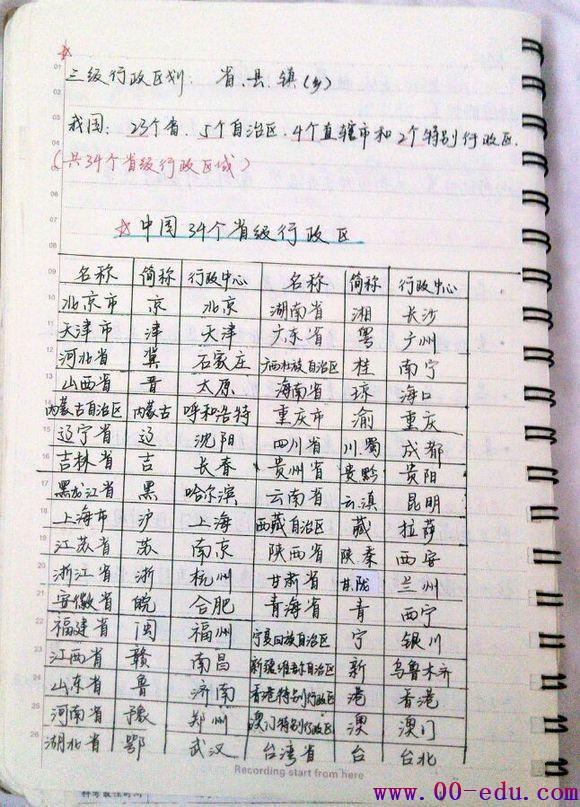 三级行政区划: 省、县、镇(乡)
我国: 23个省、5个自治区、4个直辖市和2个特别行政区.
(共34个省级行政区域)
☆中国34个省级行政区
名称 简称 行政中心 名称 简称 行政中心
北京市 京 北京 湖南省 湘 长沙
天津市 津 天津 广东省 粤 广州
河北省 冀 石家庄 广西壮族自治区 桂 南宁
山西省 晋 太原 海南省 琼 海口
内蒙古自治区 内蒙古 呼和浩特 重庆市 渝 重庆
辽宁省 辽 沈阳 四川省 川.蜀 成都
吉林省 吉 长春 贵州省 贵黔 贵阳
黑龙江省 黑 哈尔滨 云南省 云.滇 昆明
上海市 沪 上海 西藏自治区 藏 拉萨
江苏省 苏 南京 陕西省 陕.秦 西安
浙江省 浙 杭州 甘肃省 甘.陇 兰州
安徽省 皖 合肥 青海省 青 西宁
福建省 闽 福州 宁夏回族自治区 宁 银川
江西省 赣 南昌 新疆维吾尔自治区 新 乌鲁木齐
山东省 鲁 济南 香港特别行政区 港 香港
河南省 豫 郑州 澳门特别行政区 澳 澳门
湖北省 鄂 武汉 台湾省 台 台北
Recording start from here
www.00-edu.com